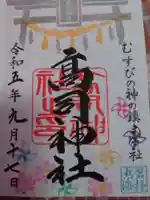 むすびの神の鎮まる社
高司神社
令和五年九月十七日